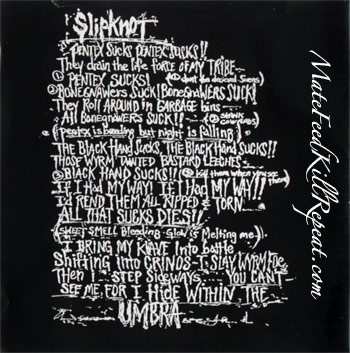 Slipknot
PENTEX SUCKS PENTEX SUCKS!!
They drain the life FORCE OF MY TRIBE
① PENTEX SUCKS!
② BONEGNAWERS SUCK! BONEGNAWERS SUCK!
They ROLL AROUND in GARBAGE bins
All BONEGNAWERS SUCK!!
(Pentex is bleeding but night is falling)
THE BLACK HAND SUCKS, THE BLACK HAND SUCKS!!
THOSE WYRM TAINTED BASTARD LEECHES
③ BLACK HAND SUCKS!! kill them when you see them
If I HAD MY WAY! If I HAD MY WAY!!
I'd REND THEM ALL RIPPED & TORN
ALL THAT SUCKS DIES!!
(SWEET SMELL Bleeding Glow is Melting me)
I BRING MY KLAIVE Into battle
Shifting into CRINOS-T. SLAY WYRM FOE
Then I STEP Sideways YOU CANT
SEE ME, FOR I HIDE WITHIN THE
UMBRA
MateFeedKillRepeat.com